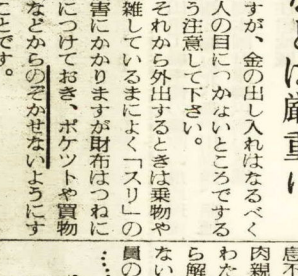 は厳重に
すが、金の出し入れはなるべく
人の目につかないところでする
う注意して下さい。
それから外出するときは乗物や
雑しているまによく「スリ」の
害にかかりますが財布はつねに
につけておき、ポケツトや買物
などからのぞかせないようにす
ことです。
肉親
わた
ら解
ない
員の
……